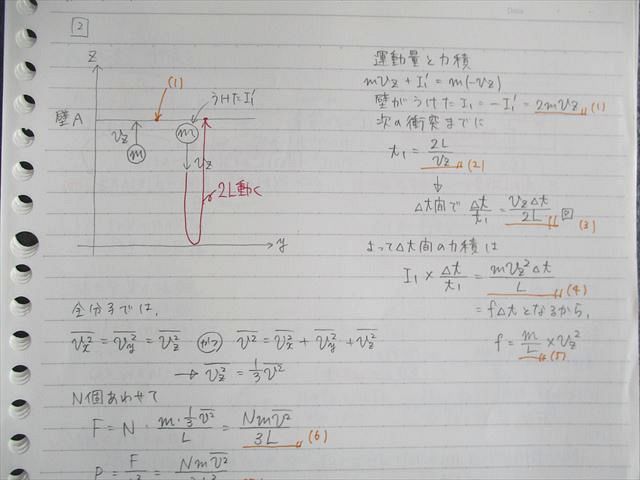 2
z
(1)
うけた I₁'
壁A
v_z
m
m
v_z
2L動く
y
運動量と力積
mv_z + I₁' = m(-v_z)
壁がうけた I₁ = -I₁' = 2mv_z (1)
次の衝突までに
t₁ = 2L/v_z (2)
↓
Δt間で Δt/t₁ = v_zΔt/2L 回 (3)
よってΔt間の力積は
I₁ × Δt/t₁ = mv_z²Δt/L (4)
= fΔtとなるから、
f = m/L × v_z² (5)
全分子では、
v̅_x̅²̅ = v̅_y̅²̅ = v̅_z̅²̅ かつ v̅²̅ = v̅_x̅²̅ + v̅_y̅²̅ + v̅_z̅²̅
→ v̅_z̅²̅ = 1/3 v̅²̅
N個あわせて
F = N · m·1/3 v̅²̅/L = Nmv̅²̅/3L (6)
P = F/L² = Nmv̅²̅